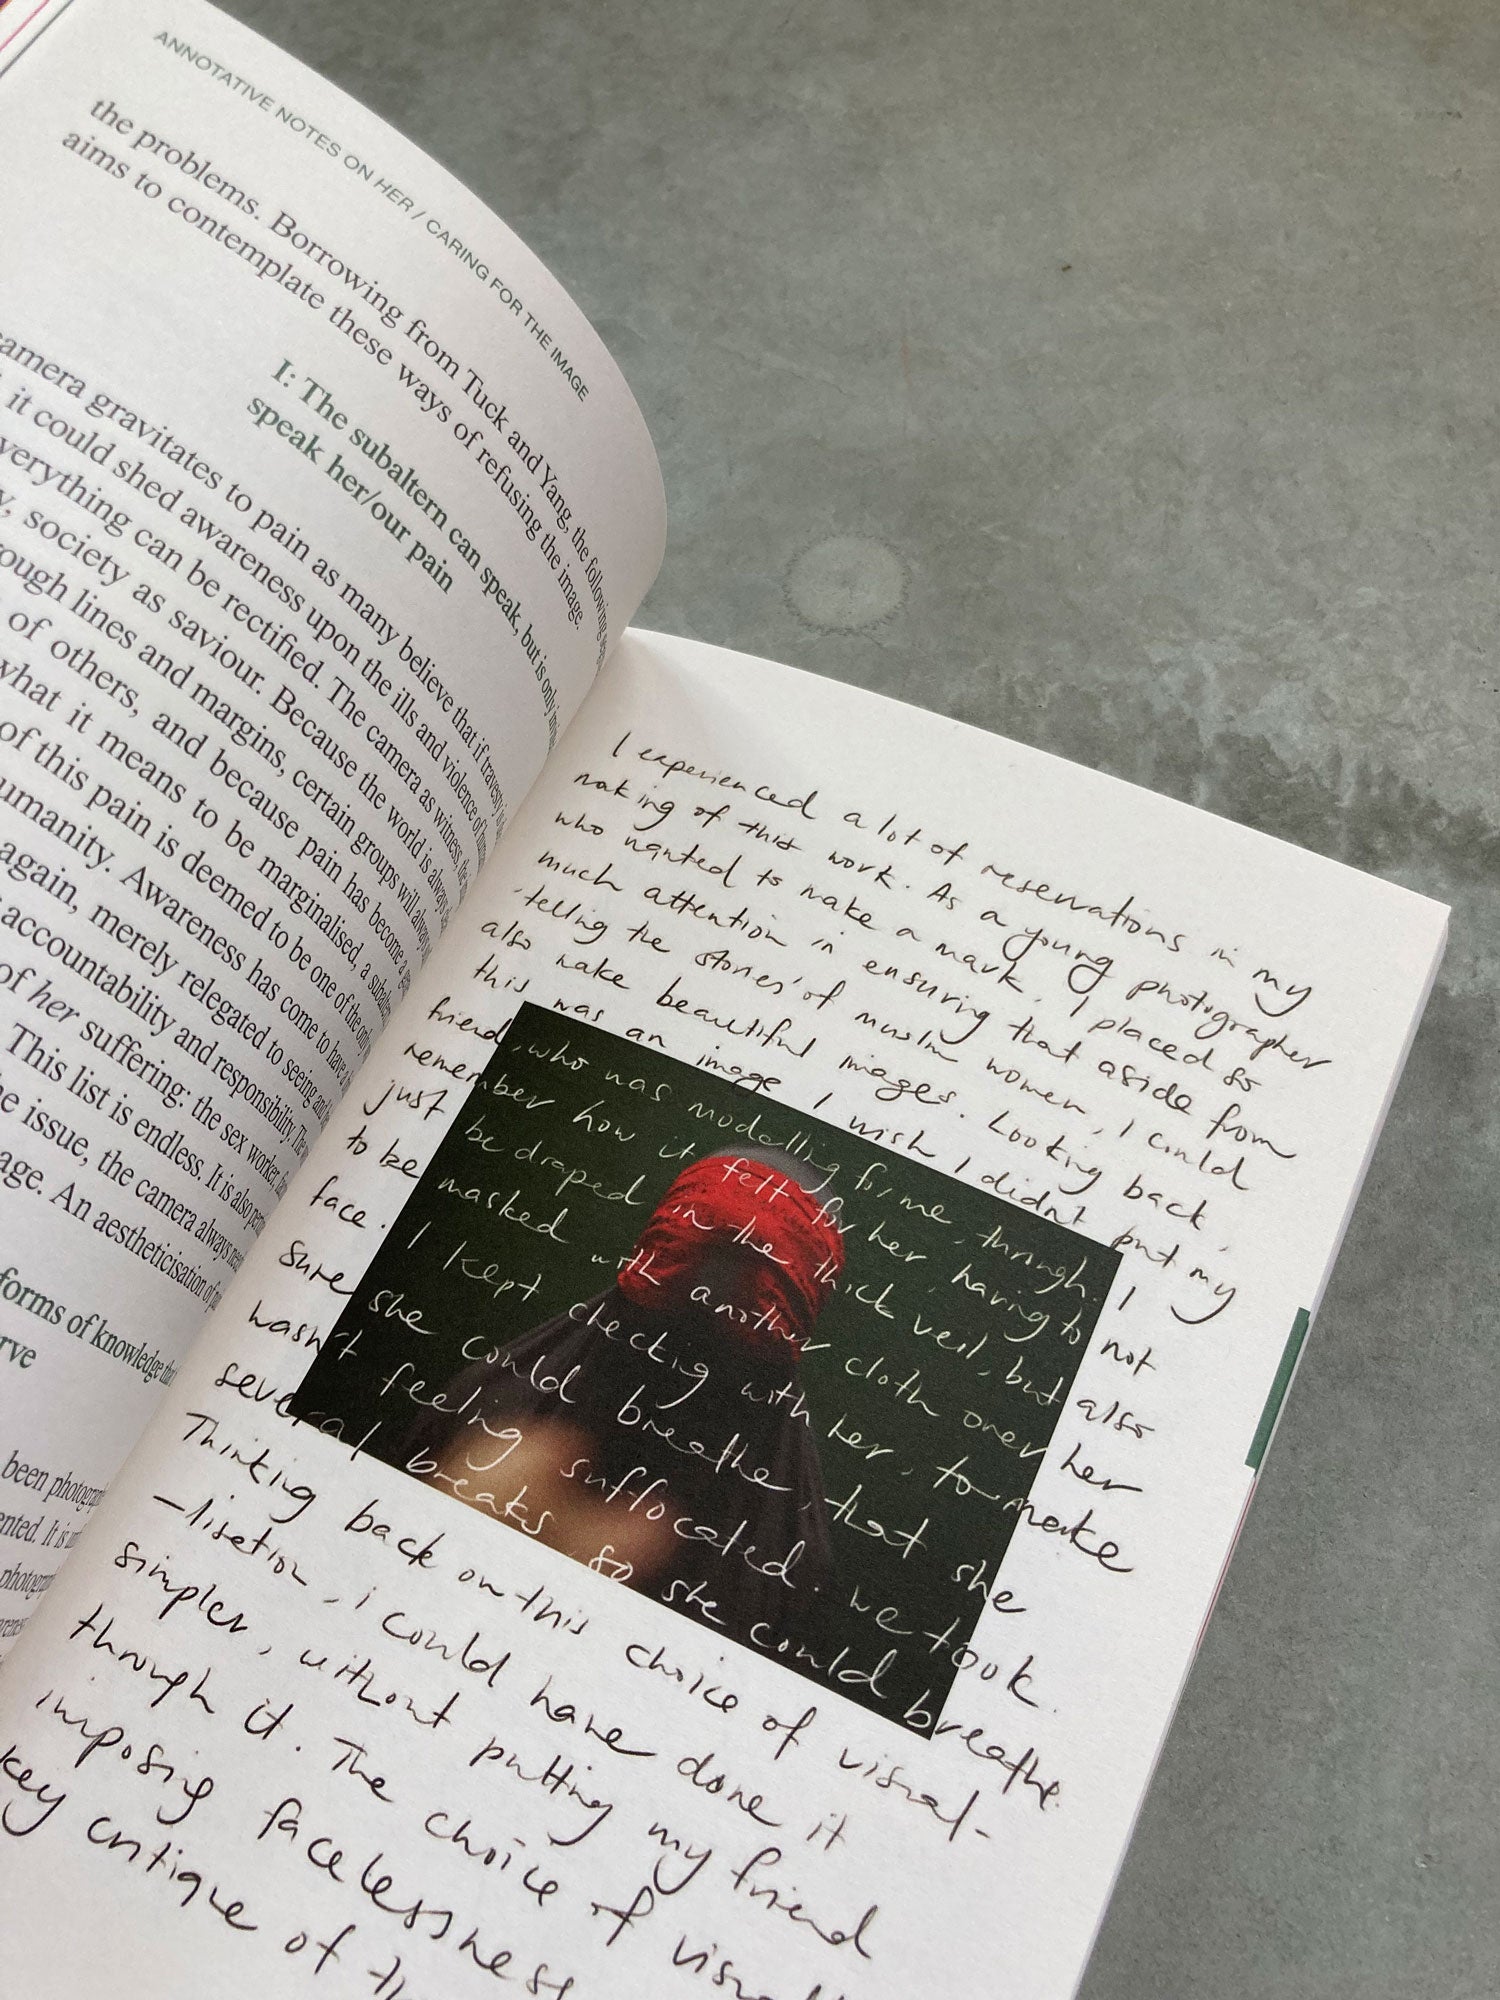 ANNOTATIVE NOTES ON HER / CARING FOR THE IMAGE
the problems. Borrowing from Tuck and Yang, the following
aims to contemplate these ways of refusing the image.
I: The subaltern can speak, but is only
speak her/our pain
camera gravitates to pain as many believe that if travesty is
it could shed awareness upon the ills and violence of
everything can be rectified. The camera as witness, the
society as saviour. Because the world is always
through lines and margins, certain groups will always
of others, and because pain has become a
what it means to be marginalised, a subaltern
of this pain is deemed to be one of the only
humanity. Awareness has come to have a
again, merely relegated to seeing and
accountability and responsibility. The
of her suffering: the sex worker,
This list is endless. It is also
the issue, the camera always
age. An aestheticisation of
forms of knowledge that
been
It is
I experienced a lot of reservations in my
making of this work. As a young photographer
who wanted to make a mark, I placed so
much attention in ensuring that aside from
'telling the stories' of muslim women, I could
also make beautiful images. Looking back,
this was an image I wish I didn't put my
friend, who was modelling for me, through. I
remember how it felt for her, having to not
just be draped in the thick veil, but also
to be masked with another cloth over her
face. I kept checking with her, to make
sure she could breathe, that she
wasn't feeling suffocated. We took
several breaks so she could breathe.
Thinking back on this choice of visual-
-lisation, i could have done it
simpler, without putting my friend
through it. The choice of
imposing facelessness
key critique of